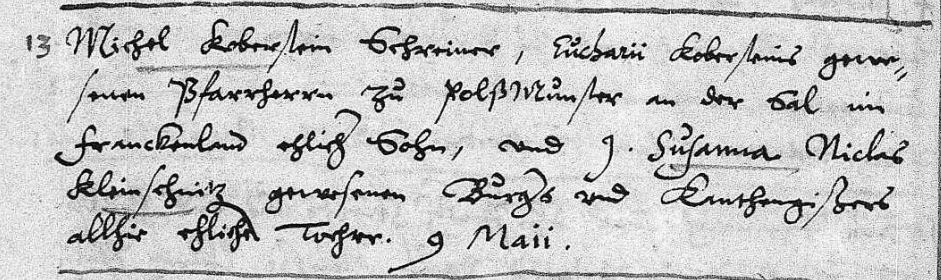 13 Michel Koberstein Schreiner, Eucharii Kobersteins gewe-
senen Pfarrherrn zu Polßmünster an der Sal im
Franckenland ehlicher Sohn, und J. Susanna Niclas
Kleinschnitz gewesenen Burgers und Kanthengißers
allhie ehliche Tochter. 9 Maii.